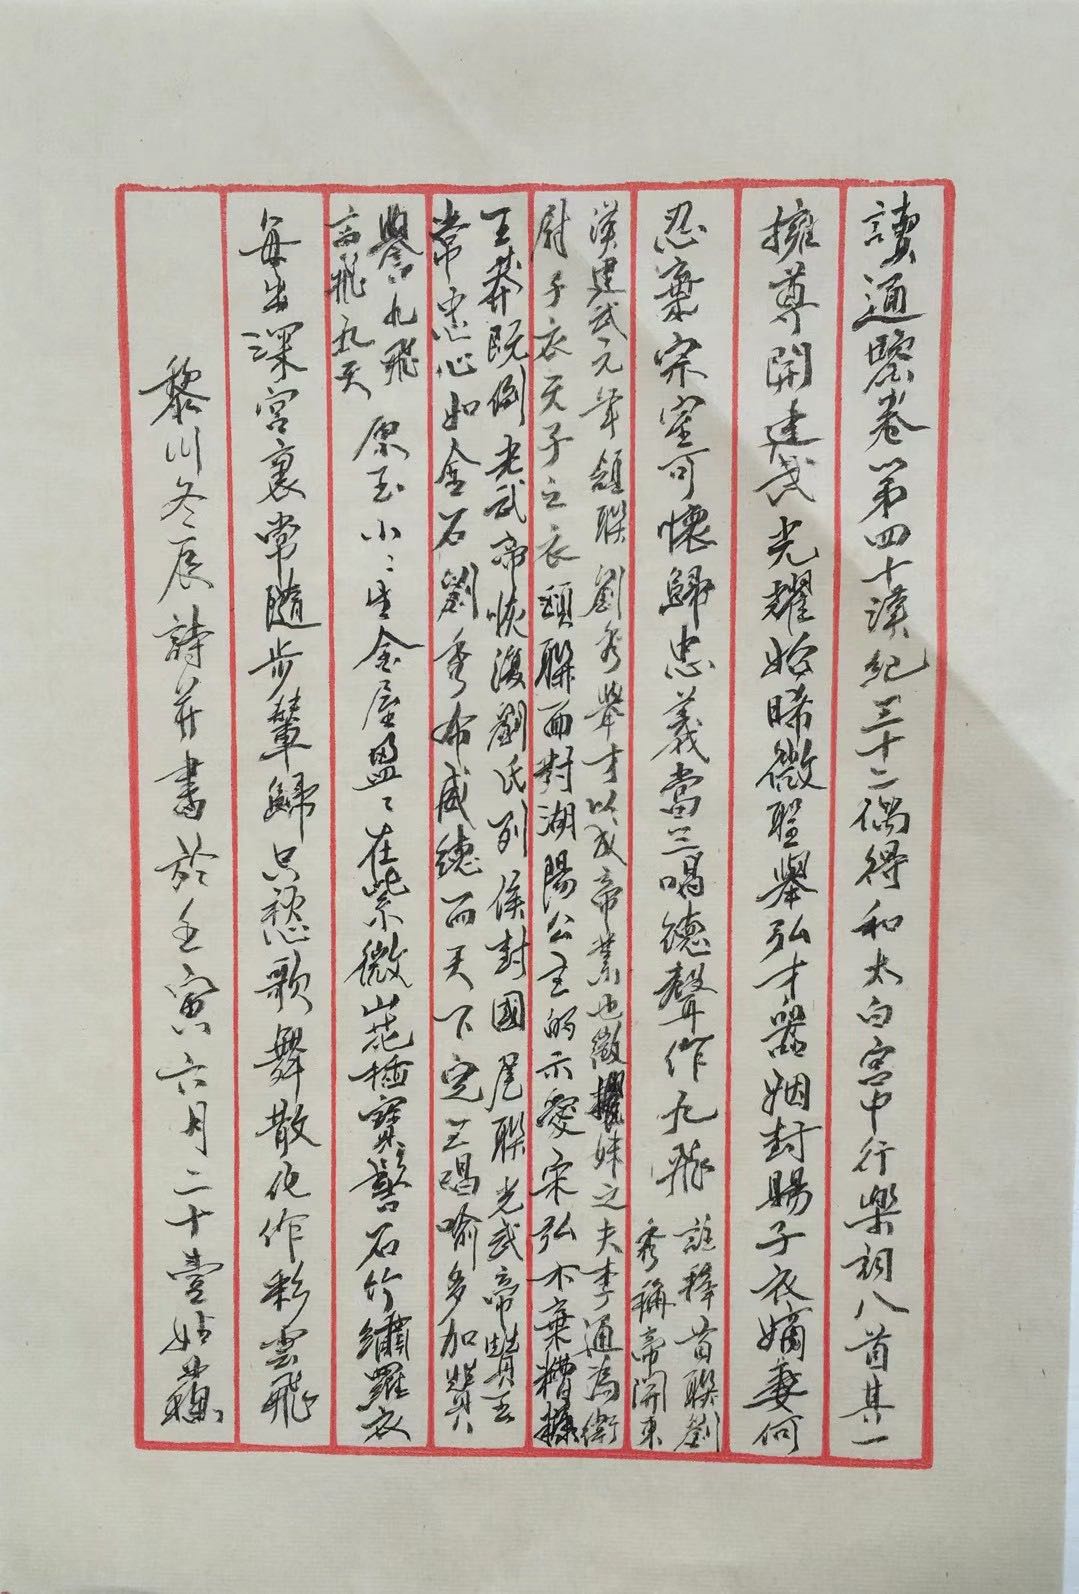 讀通鑒卷第四十漢紀三十二偶得和太白宮中行樂詞八首其一
擁尊開建武光耀始晞微聖舉弘才器姻封賜子衣嫡妻何
忍棄宗室可懷歸忠義當三唱德聲作九飛
註釋首聯劉
秀稱帝開東
漢建武元年頷聯劉秀舉才以成帝業也徵擢妹之夫李通為衛
尉子衣天子之衣頸聯面對湖陽公主的示愛宋弘不棄糟糠
王莽既倒光武帝恢復劉氏列侯封國尾聯光武帝贊王
常忠心如金石劉秀布威德而天下定三唱喻多加贊
譽九飛
高飛九天
原玉小〻生金屋盈〻在紫微山花插寶髻石竹繡羅衣
每出深宮裏常隨步輦歸只愁歌舞散化作彩雲飛
黎川冬辰詩並書於壬寅六月二十壹姑蘇